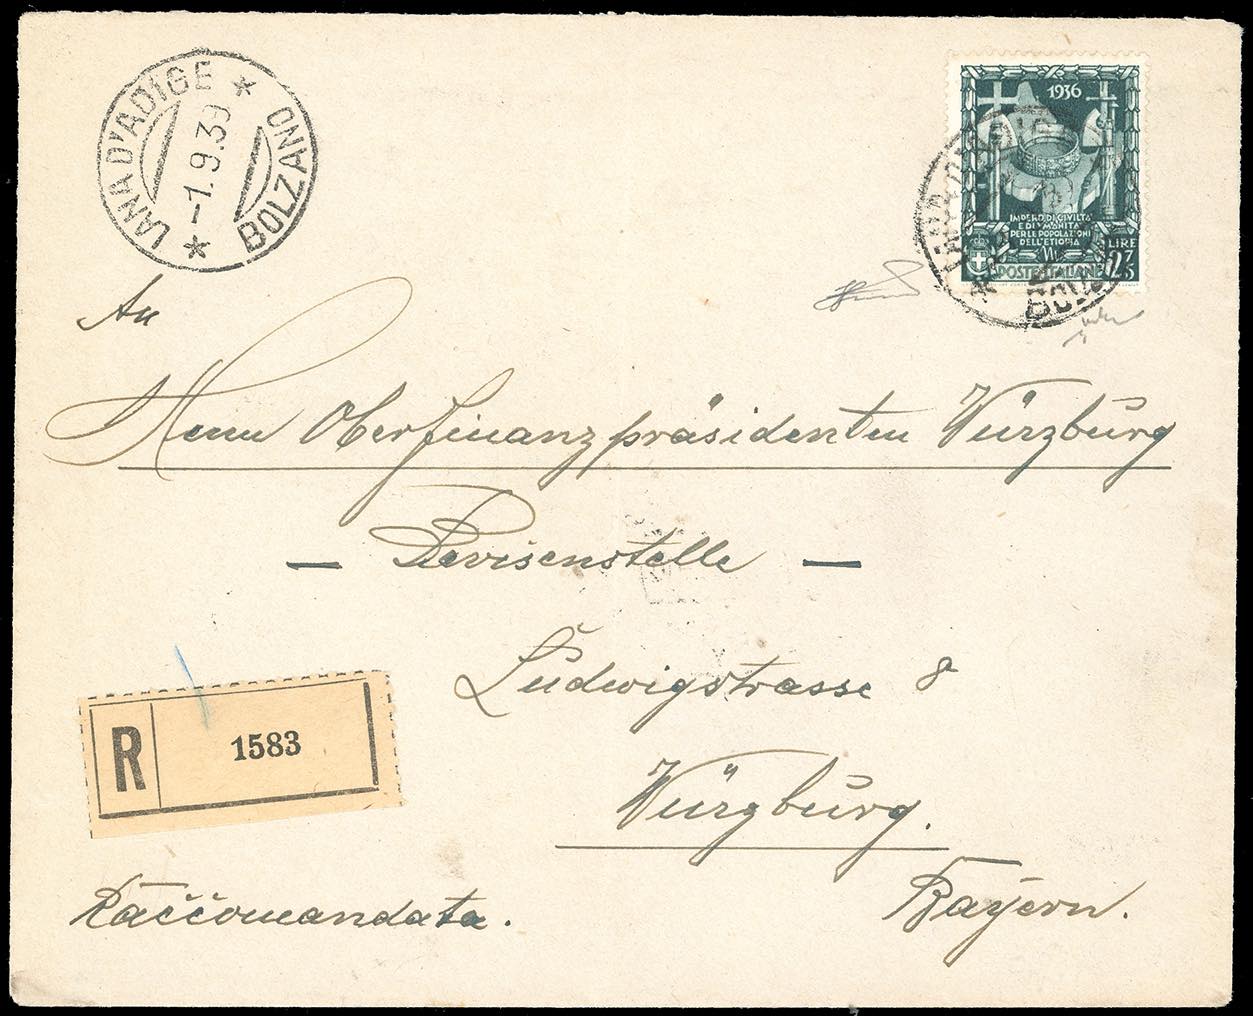 LANA D'ADIGE
-1.9.39
BOLZANO
1936
IMPERO DI CIVILTA'
E DI UMANITA'
PER LE POPOLAZIONI
DELL'ETIOPIA
LIRE
2,75
POSTE ITALIANE
BOLZANO
An
Herrn Oberfinanzpräsidenten Würzburg
– Devisenstelle –
Ludwigstrasse 8
Würzburg.
Bayern.
R 1583
Raccomandata.